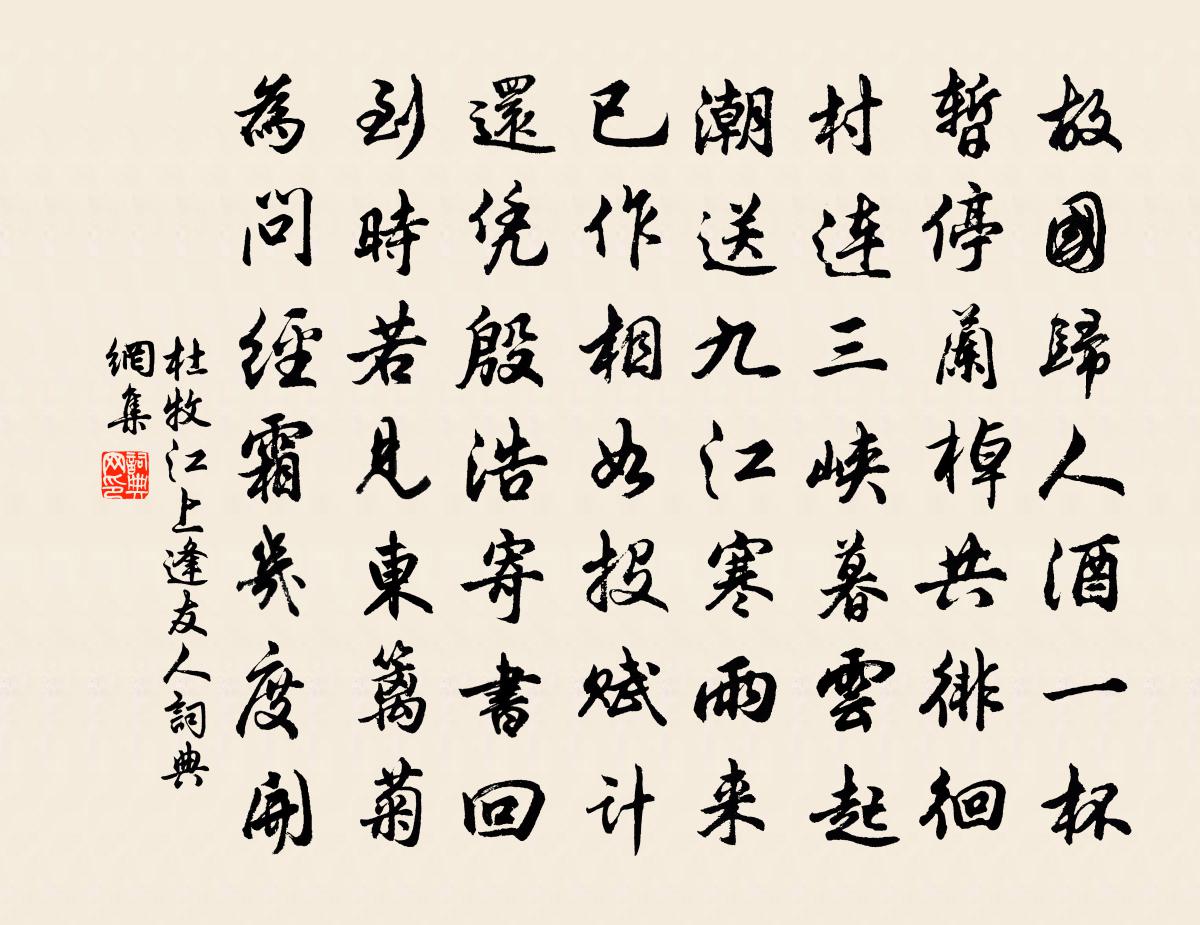 故國歸人酒一杯
暫停蘭棹共徘徊
村連三峽暮雲起
潮送九江寒雨来
已作相如投賦计
還凭殷浩寄書回
到時若見東篱菊
為問經霜幾度開
杜牧江上逢友人詞典
網集
詞典
网印